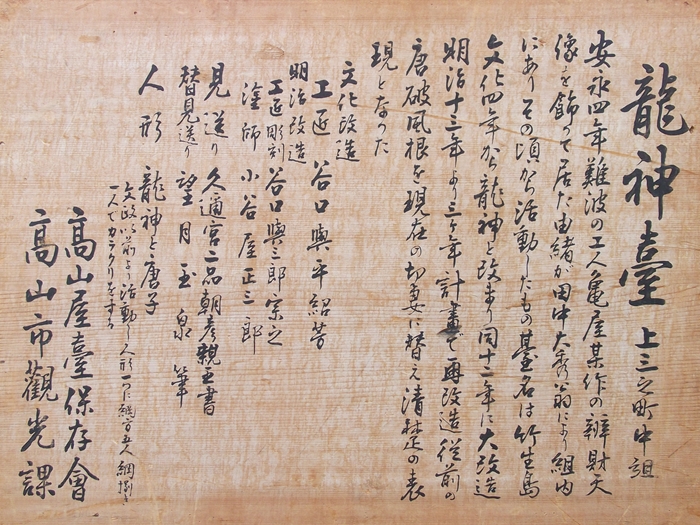 龍神臺 上三之町中組
安永四年難波の工人亀屋某作の辨財天
像を飾つて居た由緒が田中大秀翁により組内
にあり その頃から活動したもの 臺名は竹生島
文化四年から龍神と改まり同十二年に大改造
明治十三年より三ヶ年計畫で再改造従前の
唐破風根を現在の切妻に替え清楚の表
現となった
文化改造
工匠 谷口與平紹芳
明治改造
工匠彫刻 谷口與三郎宗之
塗師 小谷屋正三郎
見送り 久邇宮二品朝彦親王書
替見送り 望月玉泉筆
人形 龍神と唐子
文政以前より活動し人形一つに綱方五人
一人でカラクリをする
高山屋臺保存會
高山市觀光課